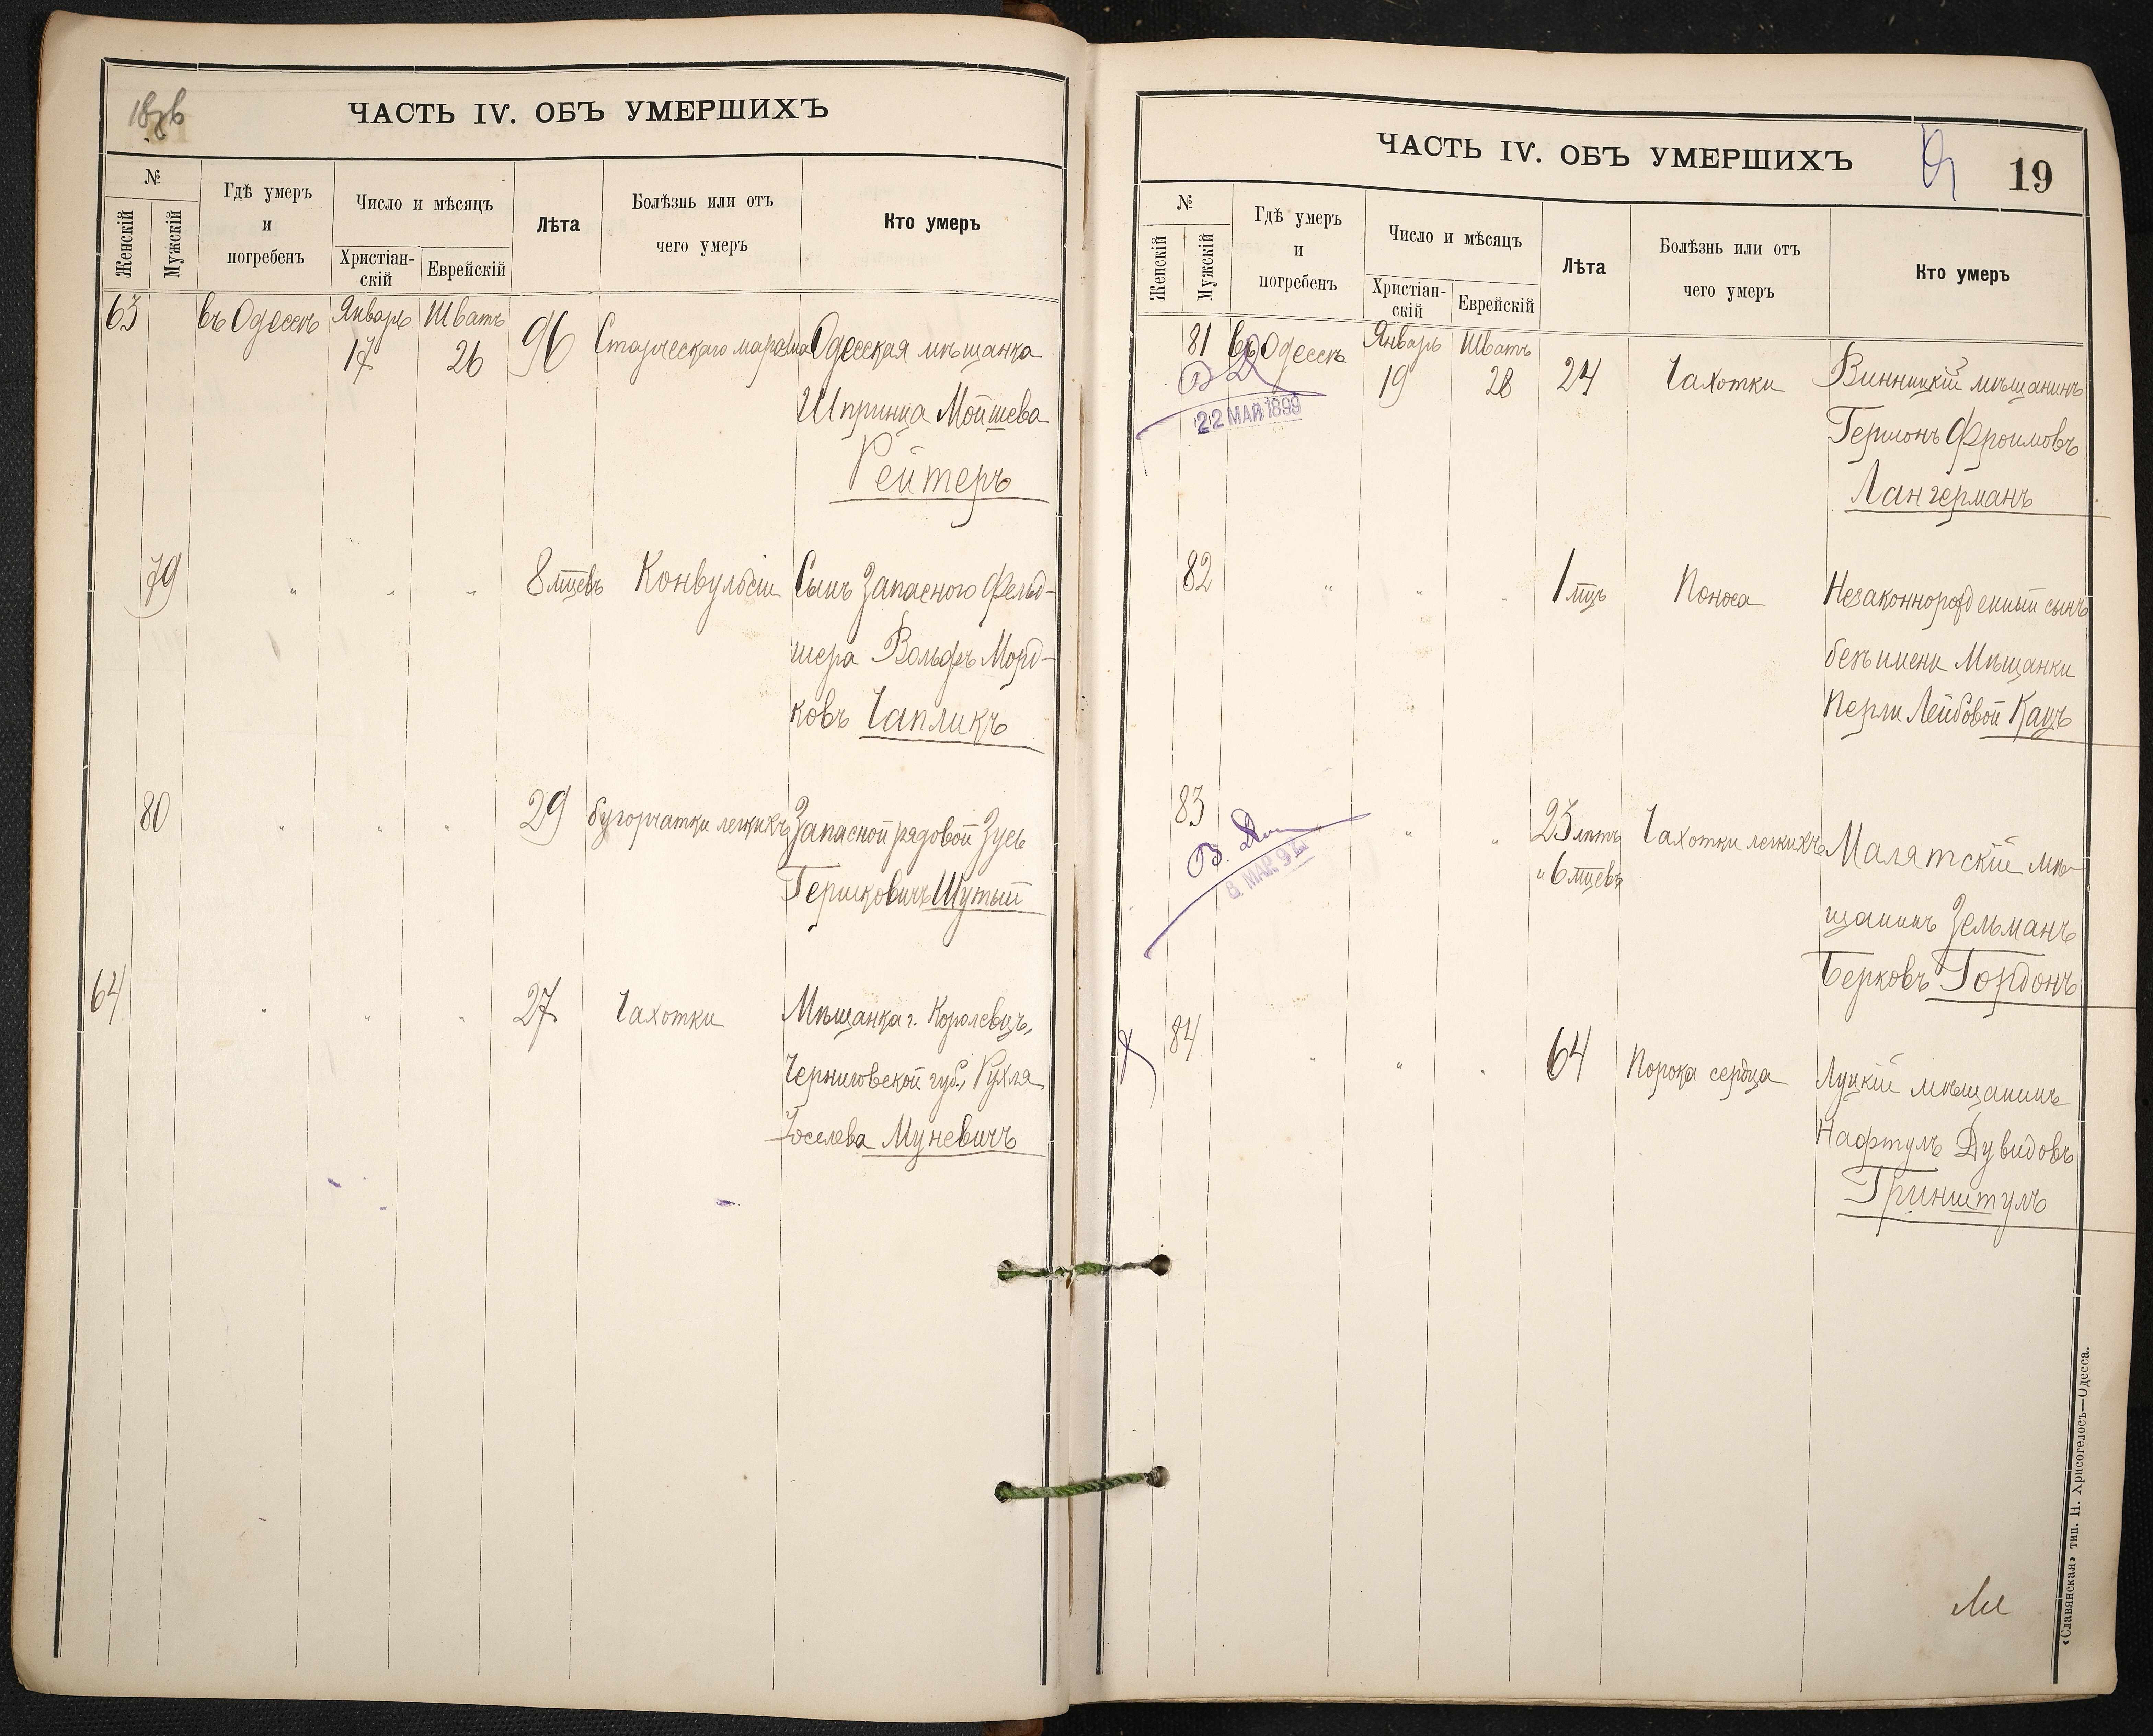 ЧАСТЬ IV. ОБЪ УМЕРШИХЪ
№
Женскій
Мужскій
Гдѣ умеръ
и
погребенъ
Число и мѣсяцъ
Христіан-
скій
Еврейскій
Лѣта
Болѣзнь или отъ
чего умеръ
Кто умеръ
63 въ Одессѣ Январь 17 Шватъ 26 96 Старческаго маразма Одесская мѣщанка
Шпринца Мойшева
Рейтеръ
79 " " " 8 мцевъ Конвульсіи Сынъ Запасного Фельд-
шера Вольфъ Морд-
ковъ Чапликъ
80 " " " 29 бугорчатки легкихъ Запасной рядовой Зусь
Гершковичъ Шутый
64 " " " 27 Чахотки Мѣщанка г. Королевцъ,
Черниговской губ., Рухля
Іоселева Муневичъ
ЧАСТЬ IV. ОБЪ УМЕРШИХЪ
19
№
Женскій
Мужскій
Гдѣ умеръ
и
погребенъ
Число и мѣсяцъ
Христіан-
скій
Еврейскій
Лѣта
Болѣзнь или отъ
чего умеръ
Кто умеръ
81 въ Одессѣ Январь 19 Шватъ 28 24 Чахотки Винницкій мѣщанинъ
22 МАЙ 1899
Гершонъ Фроимовъ
Лангерманъ
82 " " " 1 мцъ Поноса Незаконнорожденный сынъ
безъ имени Мѣщанки
Перли Лейбовой Кацъ
83 " " " 23 лѣтъ Чахотки легкихъ Малятскій мѣ-
" 6 мцевъ
щанинъ Зельманъ
Берковъ Гордонъ
84 " " " 64 Порока сердца Луцкій мѣщанинъ
Нафтулъ Дувидовъ
Гринштулъ
«Славянская» тип. Н. Хрисогелосъ—Одесса.